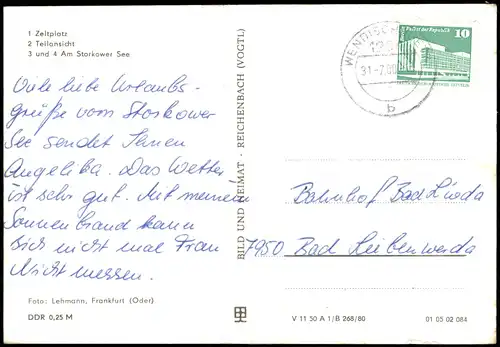 1 Zeltplatz
2 Teilansicht
3 und 4 Am Storkower See
Viele liebe Urlaubs-
grüße vom Storkower
See sendet Ihnen
Angelika. Das Wetter
ist sehr gut. Mit meinem
Sonnenbrand kann
sich nicht mal Frau
Nicht messen.
Foto: Lehmann, Frankfurt (Oder)
DDR 0,25 M
BILD UND HEIMAT · REICHENBACH (VOGTL)
V 11 50 A 1/B 268/80
01 05 02 084
WENDISCH
31.-7.80
b
Palast der Republik
10
Bahnhof Bad
7950 Bad Liebenwerda